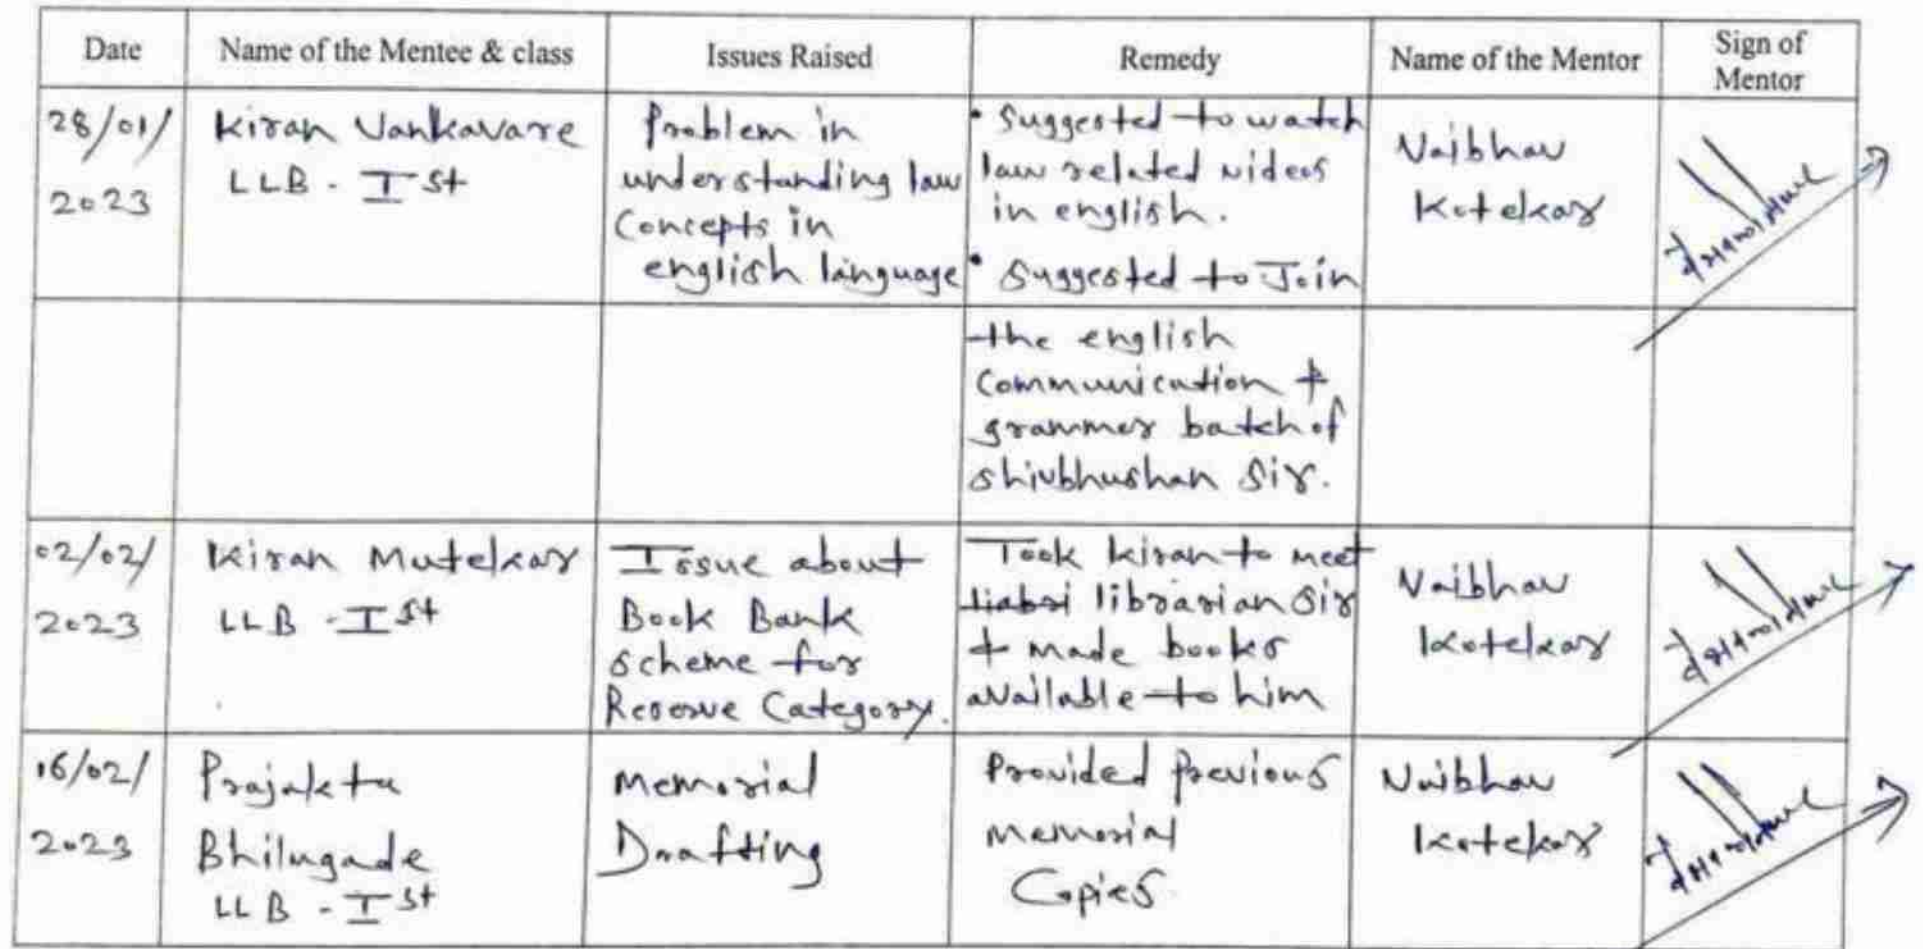 Date Name of the Mentee & class Issues Raised Remedy Name of the Mentor Sign of Mentor
28/01/2023
Kiran Vankavare
LLB - I st
Problem in
understanding law
Concepts in
english language
• Suggested to watch
law related videos
in english.
• Suggested to Join
Vaibhav
Kotekar
the english
Communication &
grammer batch of
shivbhushan Sir.
02/02/2023
Kiran Mutekar
LLB - I st
Issue about
Book Bank
scheme for
Reserve Category.
Took kiran to meet
librarian Sir
& made books
available to him
Vaibhav
Kotekar
16/02/2023
Prajakta
Bhilugade
LLB - I st
Memorial
Drafting
Provided Previous
memorial
Copies
Vaibhav
Kotekar